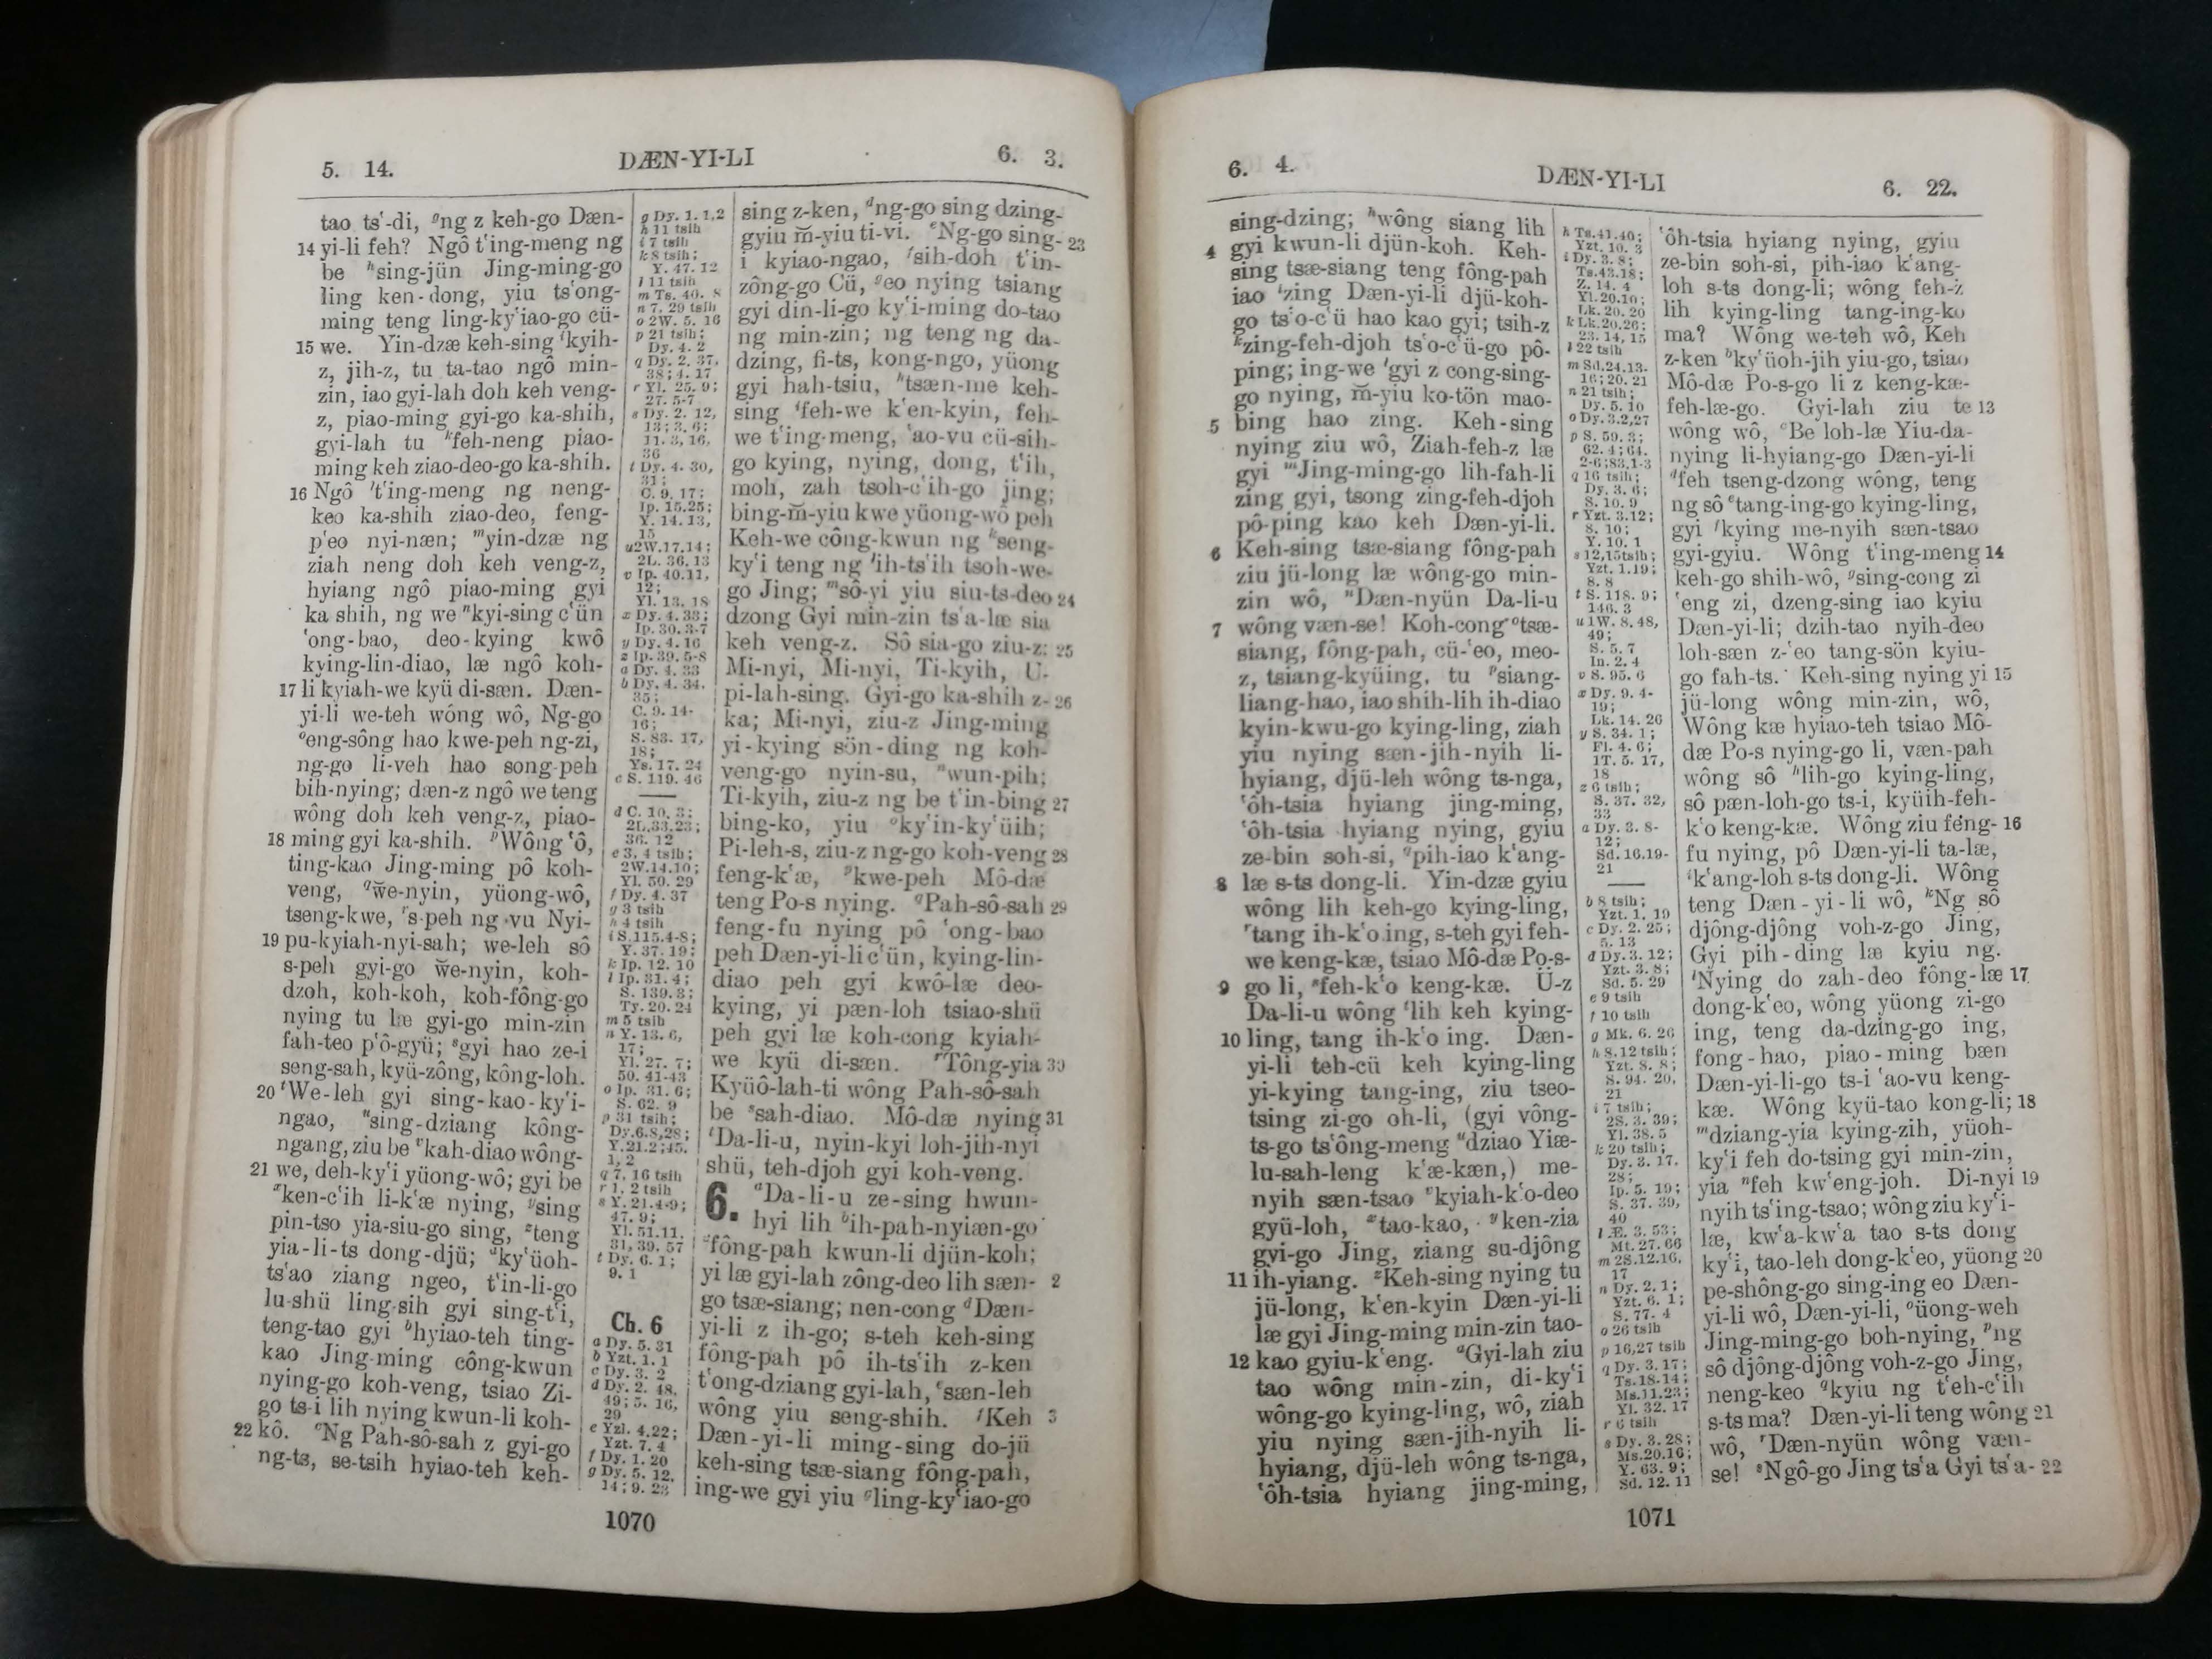 5. 14.
DÆN-YI-LI
6. 3.
tao ts‘-di, ᵍng z keh-go Dæn-
14 yi-li feh? Ngô t‘ing-meng ng
be ʰsing-jün Jing-ming-go
ling ken-dong, yiu ts‘ong-
ming teng ling-ky‘iao-go cü-
15 we. Yin-dzæ keh-sing ⁱkyih-
z, jih-z, tu ta-tao ngô min-
zin, iao gyi-lah doh keh veng-
z, piao-ming gyi-go ka-shih,
gyi-lah tu ᵏfeh-neng piao-
ming keh ziao-deo-go ka-shih.
16 Ngô ˡt‘ing-meng ng neng-
keo ka-shih ziao-deo, feng-
p‘eo nyi-næn; ᵐyin-dzæ ng
ziah neng doh keh veng-z,
hyiang ngô piao-ming gyi
ka shih, ng we ⁿkyi-sing c‘ün
‘ong-bao, deo-kying kwô
kying-lin-diao, læ ngô koh-
17 li kyiah-we kyü di-sæn. Dæn-
yi-li we-teh wông wô, Ng-go
ᵒeng-sông hao kwe-peh ng-zi,
ng-go li-veh hao song-peh
bih-nying; dæn-z ngô we teng
wông doh keh veng-z, piao-
18 ming gyi ka-shih. ᵖWông ‘ô,
ting-kao Jing-ming pô koh-
veng, ᑫw̆e-nyin, yüong-wô,
tseng-kwe, ʳs-peh ng vu Nyi-
19 pu-kyiah-nyi-sah; we-leh sô
s-peh gyi-go w̆e-nyin, koh-
dzoh, koh-koh, koh-fông-go
nying tu læ gyi-go min-zin
fah-teo p‘ô-gyü; ˢgyi hao ze-i
seng-sah, kyü-zông, kông-loh.
20 ᵗWe-leh gyi sing-kao-ky‘i-
ngao, ᵘsing-dziang kông-
ngang, ziu be ᵛkah-diao wông-
21 we, deh-ky‘i yüong-wô; gyi be
ˣken-c‘ih li-k‘æ nying, ʸsing
pin-tso yia-siu-go sing, ᶻteng
yia-li-ts dong-djü; ᵃky‘üoh-
ts‘ao ziang ngeo, t‘in-li-go
lu-shü ling-sih gyi sing-t‘i,
teng-tao gyi ᵇhyiao-teh ting-
kao Jing-ming công-kwun
nying-go koh-veng, tsiao Zi-
go ts-i lih nying kwun-li koh-
22 kô. ᶜNg Pah-sô-sah z gyi-go
ng-ts, se-tsih hyiao-teh keh-
g Dy. 1. 1,2
h 11 tsih
i 7 tsih
k 8 tsih;
Y. 47. 12
l 11 tsih
m Ts. 40. 8
n 7, 29 tsih
o 2W. 5. 16
p 21 tsih;
Dy. 4. 2
q Dy. 2. 37,
38; 4. 17
r Yl. 25. 9;
27. 5-7
s Dy. 2. 12,
13; 3. 6;
11. 3, 16,
36
t Dy. 4. 30,
31;
C. 9. 17;
Ip. 15.25;
Y. 14. 13,
15
u 2W.17.14;
2L. 36. 13
v Ip. 40.11,
12;
Yl. 13. 18
x Dy. 4. 33;
Ip. 30. 3-7
y Dy. 4. 16
z Ip. 39. 5-8
a Dy. 4. 33
b Dy. 4. 34,
35;
C. 9. 14-
16;
S. 83. 17,
18;
Ys. 17. 24
c S. 119. 46
d C. 10. 3;
2L.33.23;
36. 12
e 3, 4 tsih;
2W.14.10;
Yl. 50. 29
f Dy. 4. 37
g 3 tsih
h 4 tsih
i S.115.4-8;
Y. 37. 19;
k Ip. 12. 10
l Ip. 31. 4;
S. 139. 3;
Ty. 20. 24
m 5 tsih
n Y. 13. 6,
17;
Yl. 27. 7;
50. 41-43
o Ip. 31. 6;
S. 62. 9
p 31 tsih;
Dy.6.8,28;
Y.21.2;45.
1, 2
q 7, 16 tsih
r 1, 2 tsih
s Y. 21.4-9;
47. 9;
Yl. 51.11,
31, 39. 57
t Dy. 6. 1;
9. 1
Ch. 6
a Dy. 5. 31
b Yzt. 1. 1
c Dy. 3. 2
d Dy. 2. 48,
49; 5. 16,
29
e Yzl. 4.22;
Yzt. 7. 4
f Dy. 1. 20
g Dy. 5. 12,
14; 9. 23
sing z-ken, ᵈng-go sing dzing-
gyiu m̆-yiu ti-vi. ᵉNg-go sing- 23
i kyiao-ngao, ᶠsih-doh t‘in-
zông-go Cü, ᵍeo nying tsiang
gyi din-li-go ky‘i-ming do-tao
ng min-zin; ng teng ng da-
dzing, fi-ts, kong-ngo, yüong
gyi hah-tsiu, ʰtsæn-me keh-
sing ⁱfeh-we k‘en-kyin, feh-
we t‘ing-meng, ‘ao-vu cü-sih-
go kying, nying, dong, t‘ih,
moh, zah tsoh-c‘ih-go jing;
bing-m̆-yiu kwe yüong-wô peh
Keh-we công-kwun ng ᵏseng-
ky‘i teng ng ˡih-ts‘ih tsoh-we-
go Jing; ᵐsô-yi yiu siu-ts-deo 24
dzong Gyi min-zin ts‘a-læ sia
keh veng-z. Sô sia-go ziu-z: 25
Mi-nyi, Mi-nyi, Ti-kyih, U-
pi-lah-sing. Gyi-go ka-shih z- 26
ka; Mi-nyi, ziu-z Jing-ming
yi-kying sön-ding ng koh-
veng-go nyin-su, ⁿwun-pih;
Ti-kyih, ziu-z ng be t‘in-bing 27
bing-ko, yiu ᵒky‘in-ky‘üih;
Pi-leh-s, ziu-z ng-go koh-veng 28
feng-k‘æ, ᵖkwe-peh Mô-dæ
teng Po-s nying. ᑫPah-sô-sah 29
feng-fu nying pô ‘ong-bao
peh Dæn-yi-li c‘ün, kying-lin-
diao peh gyi kwô-læ deo-
kying, yi pæn-loh tsiao-shü
peh gyi læ koh-cong kyiah-
we kyü di-sæn. ʳTông-yia 30
Kyüô-lah-ti wông Pah-sô-sah
be ˢsah-diao. Mô-dæ nying 31
ᵗDa-li-u, nyin-kyi loh-jih-nyi
shü, teh-djoh gyi koh-veng.
6. ᵃDa-li-u ze-sing hwun-
hyi lih ᵇih-pah-nyiæn-go
ᶜfông-pah kwun-li djün-koh;
yi læ gyi-lah zông-deo lih sæn- 2
go tsæ-siang; nen-cong ᵈDæn-
yi-li z ih-go; s-teh keh-sing
fông-pah pô ih-ts‘ih z-ken
t‘ong-dziang gyi-lah, ᵉsæn-leh
wông yiu seng-shih. ᶠKeh 3
Dæn-yi-li ming-sing do-jü
keh-sing tsæ-siang fông-pah,
ing-we gyi yiu ᵍling-ky‘iao-go
1070
6. 4.
DÆN-YI-LI
6. 22.
sing-dzing; ʰwông siang lih
4 gyi kwun-li djün-koh. Keh-
sing tsæ-siang teng fông-pah
iao ⁱzing Dæn-yi-li djü-koh-
go ts‘o-c‘ü hao kao gyi; tsih-z
ᵏzing-feh-djoh ts‘o-c‘ü-go pô-
ping; ing-we ˡgyi z cong-sing-
go nying, m̆-yiu ko-tön mao-
5 bing hao zing. Keh-sing
nying ziu wô, Ziah-feh-z læ
gyi ᵐJing-ming-go lih-fah-li
zing gyi, tsong zing-feh-djoh
pô-ping kao keh Dæn-yi-li.
6 Keh-sing tsæ-siang fông-pah
ziu jü-long læ wông-go min-
zin wô, ⁿDæn-nyün Da-li-u
7 wông væn-se! Koh-cong ᵒtsæ-
siang, fông-pah, cü-‘eo, meo-
z, tsiang-kyüing, tu ᵖsiang-
liang-hao, iao shih-lih ih-diao
kyin-kwu-go kying-ling, ziah
yiu nying sæn-jih-nyih li-
hyiang, djü-leh wông ts-nga,
‘ôh-tsia hyiang jing-ming,
‘ôh-tsia hyiang nying, gyiu
ze-bin soh-si, ᑫpih-iao k‘ang-
8 læ s-ts dong-li. Yin-dzæ gyiu
wông lih keh-go kying-ling,
ʳtang ih-k‘o ing, s-teh gyi feh-
we keng-kæ, tsiao Mô-dæ Po-s-
9 go li, ˢfeh-k‘o keng-kæ. Ü-z
Da-li-u wông ᵗlih keh kying-
10 ling, tang ih-k‘o ing. Dæn-
yi-li teh-cü keh kying-ling
yi-kying tang-ing, ziu tseo-
tsing zi-go oh-li, (gyi vông-
ts-go ts‘ông-meng ᵘdziao Yiæ-
lu-sah-leng k‘æ-kæn,) me-
nyih sæn-tsao ᵛkyiah-k‘o-deo
gyü-loh, ˣtao-kao, ʸken-zia
gyi-go Jing, ziang su-djông
11 ih-yiang. ᶻKeh-sing nying tu
jü-long, k‘en-kyin Dæn-yi-li
læ gyi Jing-ming min-zin tao-
12 kao gyiu-k‘eng. ᵃGyi-lah ziu
tao wông min-zin, di-ky‘i
wông-go kying-ling, wô, ziah
yiu nying sæn-jih-nyih li-
hyiang, djü-leh wông ts-nga,
‘ôh-tsia hyiang jing-ming,
h Ts.41.40;
Yzt. 10. 3
i Dy. 3. 8;
Ts.43.18;
Z. 14. 4
Yl.20.10;
Lk. 20. 20
k Lk.20.26;
23. 14, 15
l 22 tsih
m Sd.24.13-
16; 20. 21
n 21 tsih;
Dy. 5. 10
o Dy. 3.2,27
p S. 59. 3;
62. 4; 64.
2-6;83.1-3
q 16 tsih;
Dy. 3. 6;
S. 10. 9
r Yzt. 3.12;
S. 10;
Y. 10. 1
s 12,15tsih;
Yzt. 1.19;
8. 8
t S. 118. 9;
146. 3
u 1W. 8. 48,
49;
S. 5. 7
In. 2. 4
v S. 95. 6
x Dy. 9. 4-
19;
Lk. 14. 26
y S. 34. 1;
Fl. 4. 6;
1T. 5. 17,
18
z 6 tsih;
S. 37. 32,
33
a Dy. 3. 8-
12;
Sd. 16.19-
21
b 8 tsih;
Yzt. 1. 19
c Dy. 2. 25;
5. 13
d Dy. 3. 12;
Yzt. 3. 8;
Sd. 5. 29
e 9 tsih
f 10 tsih
g Mk. 6. 26
h 8.12 tsih;
Yzt. 8. 8;
S. 94. 20,
21
i 7 tsih;
2S. 3. 39;
Yl. 38. 5
k 20 tsih;
Dy. 3. 17.
28;
Ip. 5. 19;
S. 37. 39,
40
l Æ. 3. 53;
Mt. 27. 66
m 2S.12.16,
17
n Dy. 2. 1;
Yzt. 6. 1;
S. 77. 4
o 26 tsih
p 16,27 tsih
q Dy. 3. 17;
Ts.18.14;
Ms.11.23;
Yl. 32. 17
r 6 tsih
s Dy. 3. 28;
Ms.20.16;
Y. 63. 9;
Sd. 12. 11
‘ôh-tsia hyiang nying, gyiu
ze-bin soh-si, pih-iao k‘ang-
loh s-ts dong-li; wông feh-z
lih kying-ling tang-ing-ko
ma? Wông we-teh wô, Keh
z-ken ᵇky‘üoh-jih yiu-go, tsiao
Mô-dæ Po-s-go li z keng-kæ-
feh-læ-go. Gyi-lah ziu te 13
wông wô, ᶜBe loh-læ Yiu-da-
nying li-hyiang-go Dæn-yi-li
ᵈfeh tseng-dzong wông, teng
ng sô ᵉtang-ing-go kying-ling,
gyi ᶠkying me-nyih sæn-tsao
gyi-gyiu. Wông t‘ing-meng 14
keh-go shih-wô, ᵍsing-cong zi
‘eng zi, dzeng-sing iao kyiu
Dæn-yi-li; dzih-tao nyih-deo
loh-sæn z-‘eo tang-sön kyiu-
go fah-ts. Keh-sing nying yi 15
jü-long wông min-zin, wô,
Wông kæ hyiao-teh tsiao Mô-
dæ Po-s nying-go li, væn-pah
wông sô ʰlih-go kying-ling,
sô pæn-loh-go ts-i, kyüih-feh-
k‘o keng-kæ. Wông ziu feng- 16
fu nying, pô Dæn-yi-li ta-læ,
ⁱk‘ang-loh s-ts dong-li. Wông
teng Dæn-yi-li wô, ᵏNg sô
djông-djông voh-z-go Jing,
Gyi pih-ding læ kyiu ng.
ˡNying do zah-deo fông-læ 17
dong-k‘eo, wông yüong zi-go
ing, teng da-dzing-go ing,
fong-hao, piao-ming bæn
Dæn-yi-li-go ts-i ‘ao-vu keng-
kæ. Wông kyü-tao kong-li; 18
ᵐdziang-yia kying-zih, yüoh-
ky‘i feh do-tsing gyi min-zin,
yia ⁿfeh kw‘eng-joh. Di-nyi 19
nyih ts‘ing-tsao; wông ziu ky‘i-
læ, kw‘a-kw‘a tao s-ts dong
ky‘i, tao-leh dong-k‘eo, yüong 20
pe-shông-go sing-ing eo Dæn-
yi-li wô, Dæn-yi-li, ᵒüong-weh
Jing-ming-go boh-nying, ᵖng
sô djông-djông voh-z-go Jing,
neng-keo ᑫkyiu ng t‘eh-c‘ih
s-ts ma? Dæn-yi-li teng wông 21
wô, ʳDæn-nyün wông væn-
se! ˢNgô-go Jing ts‘a Gyi ts‘a- 22
1071